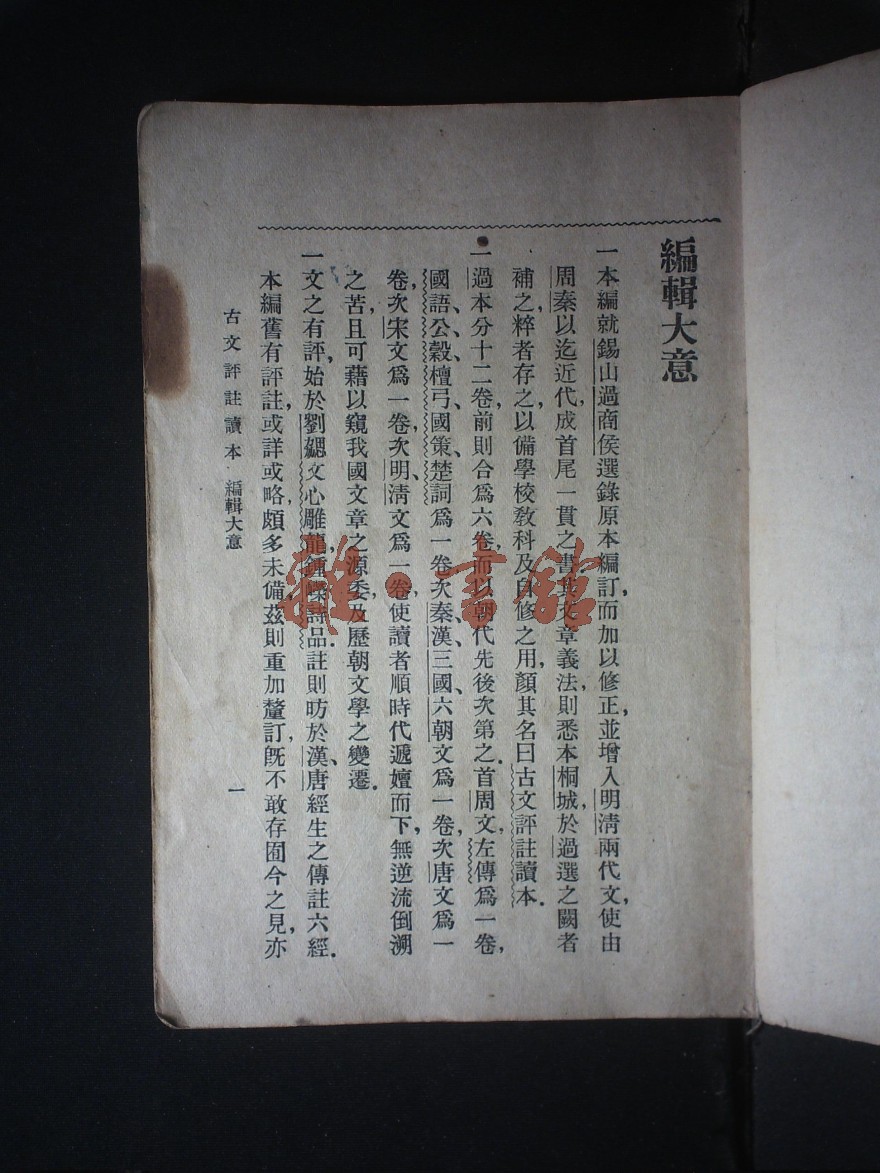 編輯大意
一本編就錫山過商侯選錄原本編訂,而加以修正,並增入明清兩代文,使由
周秦以迄近代,成首尾一貫之書,其文章義法,則悉本桐城,於過選之闕者
補之,粹者存之,以備學校教科及自修之用,顏其名曰古文評註讀本.
一過本分十二卷,前則合爲六卷,而以朝代先後次第之.首周文,左傳爲一卷,
國語、公、穀、檀弓、國策、楚詞爲一卷,次秦、漢、三國、六朝文爲一卷,次唐文爲一
卷,次宋文爲一卷,次明、清文爲一卷,使讀者順時代遞嬗而下,無逆流倒溯
之苦,且可藉以窺我國文章之源委,及歷朝文學之變遷.
一文之有評,始於劉勰文心雕龍,鍾嶸詩品.註則昉於漢、唐經生之傳註六經.
本編舊有評註,或詳或略,頗多未備,茲則重加釐訂,旣不敢存囿今之見,亦
古文評註讀本 編輯大意
一
雜·書館